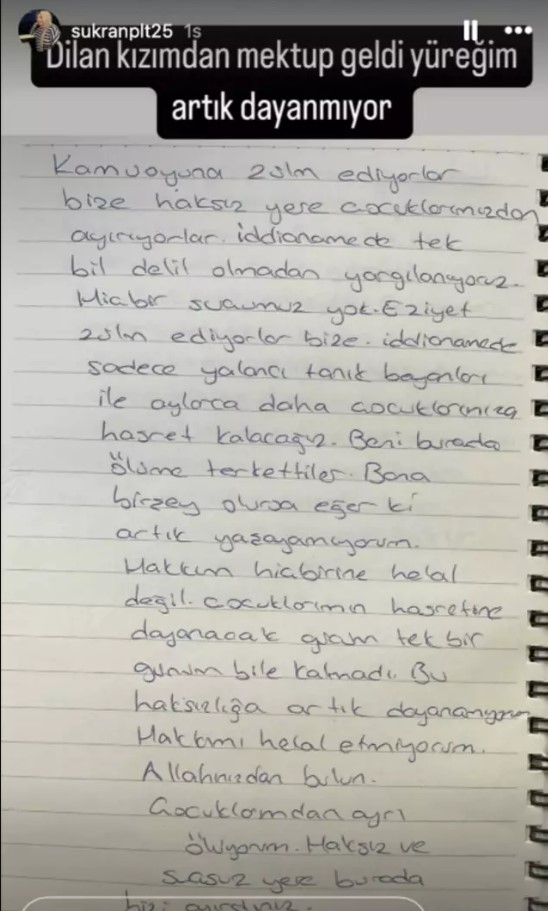 sukranplt25 1s
Dilan kızımdan mektup geldi yüreğim
artık dayanmıyor
Kamuoyuna zulm ediyorlar
bize haksız yere çocuklarımızdan
ayırıyorlar. iddianamede tek
bil delil olmadan yargılanıyoruz.
Hiçbir suçumuz yok. Eziyet
zulm ediyorlar bize. iddianamede
sadece yalancı tanık beyanları
ile aylarca daha çocuklarımıza
hasret kalacağız. Beni burada
ölüme terkettiler. Bana
birşey olursa eğer ki
artık yaşayamıyorum.
Hakkım hiçbirine helal
değil. çocuklarımın hasretine
dayanacak gram tek bir
gunum bile kalmadı. Bu
haksızlığa artık dayanamıyorum
Hakkımı helal etmiyorum.
Allahınızdan bulun.
Çocuklarımdan ayrı
ölüyorum. Haksız ve
suçsuz yere burada
bizi ayırdınız.